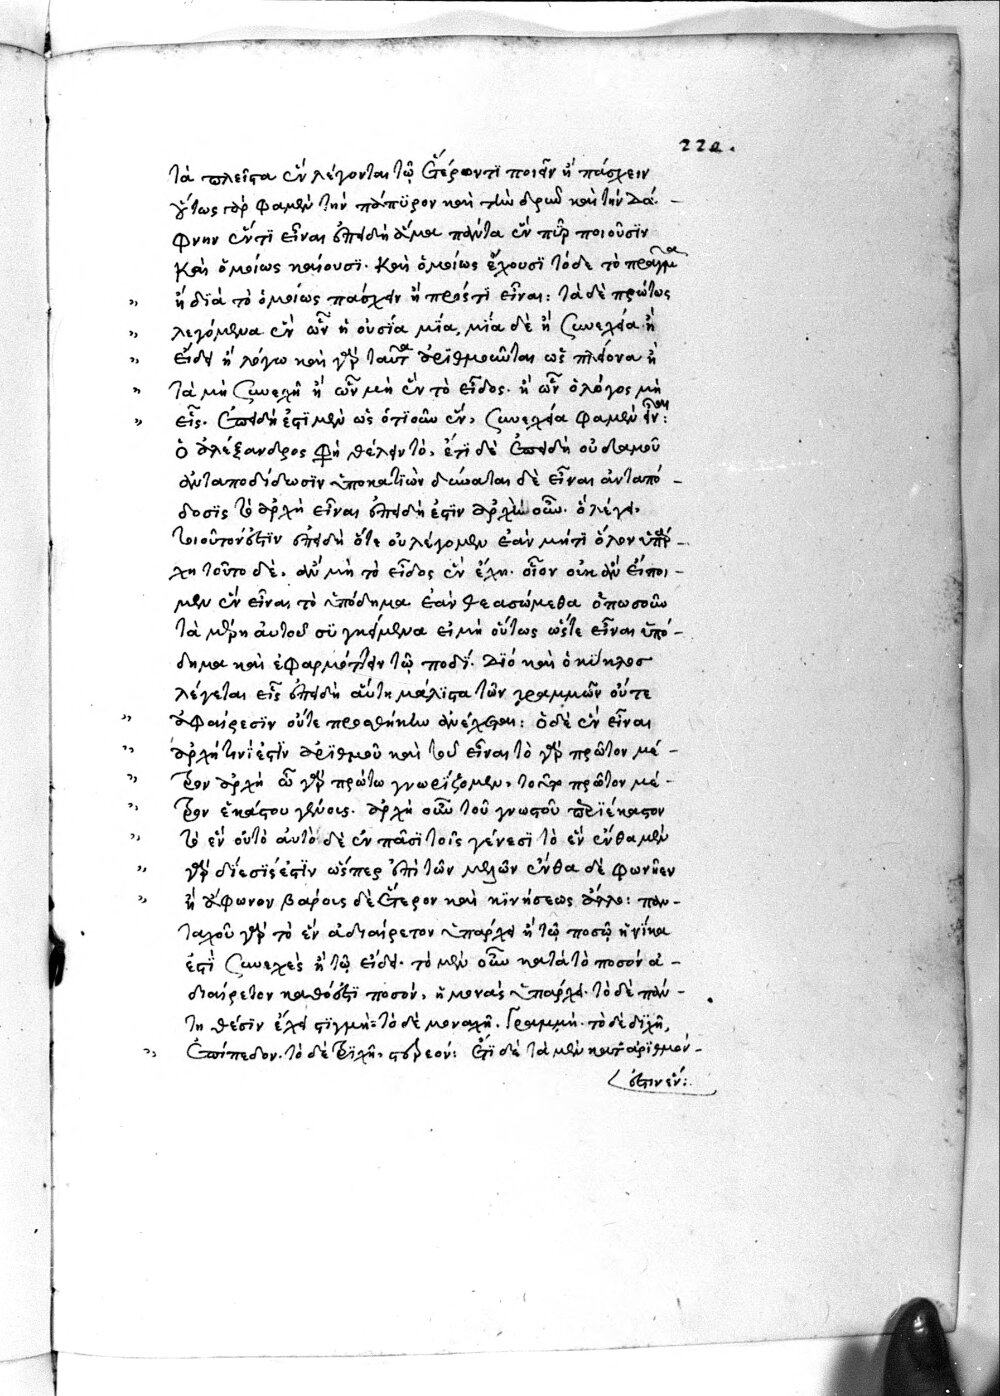 220.
τὰ πλεῖστα ἓν λέγονται τῷ ἕτερόν τι ποιεῖν ἢ πάσχειν
οὕτως γὰρ φαμὲν τὴν πάπυρον καὶ τὴν δρῦν καὶ τὴν δά-
φνην ἕν τι εἶναι ἐπειδὴ ἅμα πάντα ἓν πῦρ ποιοῦσϊν
καὶ ὁμοίως καίουσϊ. καὶ ὁμοίως ἔχουσϊ τόδε τὸ πρᾶγμα
ἢ δϊὰ τὸ ὁμοίως πάσχειν ἢ πρός τι εἶναι: τὰ δὲ πρώτως
λεγόμενα ἓν ὧν ἡ οὐσία μΐα, μΐα δὲ ἢ συνεχείᾳ ἢ
εἴδει ἢ λόγω καὶ γὰρ ταῦτα ἀρϊθμοῦνται ὡς πλείονα ἢ
τὰ μὴ συνεχῆ ἢ ὧν μὴ ἓν τὸ εἶδος. ἢ ὧν ὁ λόγος μὴ
εἷς. ἐπειδὴ ἔστι μὲν ὡς ὁτιοῦν ἓν, συνεχείᾳ φαμὲν εἶναι:
ὁ ἀλέξανδρος φησὶ λείπειν τὸ, ἔτι δὲ ἐπειδὴ οὐδαμοῦ
ἀνταποδίδωσϊν ὑποκατϊὼν δύναται δὲ εἶναι ἀνταπό-
δοσϊς τὸ ἀρχὴ εἶναι ἐπειδὴ ἐστὶν ἀρχὴ οὖν. ὃ λέγει,
τοιοῦτόν ἐστϊν ἐπειδὴ ὅτε οὐ λέγομεν ἐὰν μή τι ὅλον ὑπάρ-
χη τοῦτο δὲ, ἂν μὴ τὸ εἶδος ἓν ἔχη. οἷον οὐκ ἂν εἴποι-
μεν ἓν εἶναι τὸ ὑπόδημα ἐὰν θεασώμεθα ὁπωσοῦν
τὰ μέρη αὐτοῦ συγκείμενα εἰ μὴ οὕτως ὥστε εἶναι ὑπό-
δημα καὶ ἐφαρμόττειν τῷ ποδΐ. Δϊό καὶ ὁ κύκλος
λέγεται εἷς ἐπειδὴ αὕτη μάλϊστα τῶν γραμμῶν οὔτε
ἀφαίρεσϊν οὔτε προσθήκην ἀνέχεται: ὁ δὲ ἓν εἶναι
ἀρχή τινί ἐστϊν ἀρϊθμοῦ καὶ τοῦ εἶναι τὸ γὰρ πρῶτον μέ-
τρον ἀρχή ᾧ γὰρ πρώτω γνωρϊζομεν, τοῦτο πρῶτον μέ-
τρον ἑκάστου γένους. ἀρχὴ οὖν τοῦ γνωστοῦ περὶ ἕκαστον
τὸ ἓν οὐ τὸ αὐτὸ δὲ ἐν πᾶσϊ τοῖς γένεσϊ τὸ ἓν ἔνθα μὲν
γὰρ δίεσϊς ἐστϊν ὥσπερ ἐπὶ τῶν μελῶν ἔνθα δὲ φωνῆεν
ἢ ἄφωνον βάρους δὲ ἕτερον καὶ κϊνήσεως ἄλλο: παν-
ταχοῦ γὰρ τὸ ἓν ἀδιαίρετον ὑπάρχει ἢ τῷ ποσῷ ἡνίκα
ἐστὶ συνεχὲς ἢ τῷ εἴδει. τὸ μὲν οὖν κατὰ τὸ ποσὸν ἀ-
διαίρετον καθό ἐστϊ ποσόν, ἡ μονὰς ὑπάρχει. τὸ δὲ πάν-
τη θέσϊν ἔχει στϊγμή: τὸ δὲ μοναχῆ. Γραμμή. τὸ δὲ διχῆ,
ἐπίπεδον. τὸ δὲ τρϊχῆ, στερεόν: ἔτι δὲ τὰ μὲν κατ' ἀρϊθμόν-
ἐστιν ἕν: